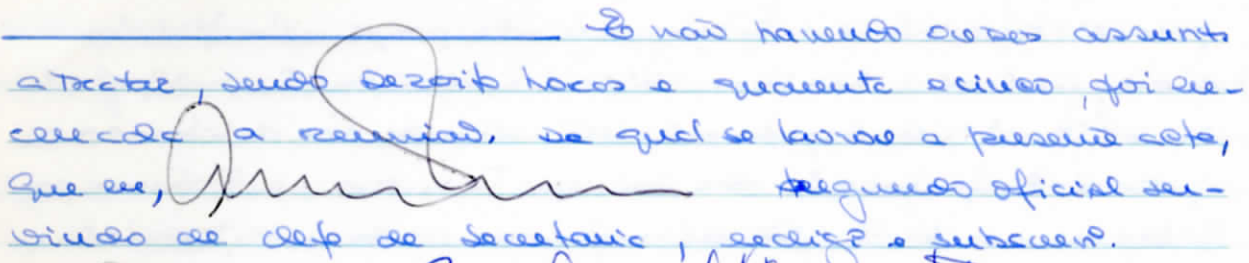 E não havendo outros assuntos
a tractar, sendo dezoito horas e quarenta e cinco, foi en-
cerrada a reunião, da qual se lavrou a presente acta,
que eu, segundo oficial ser-
vindo de chefe de secretaria, redigi e subscrevi.